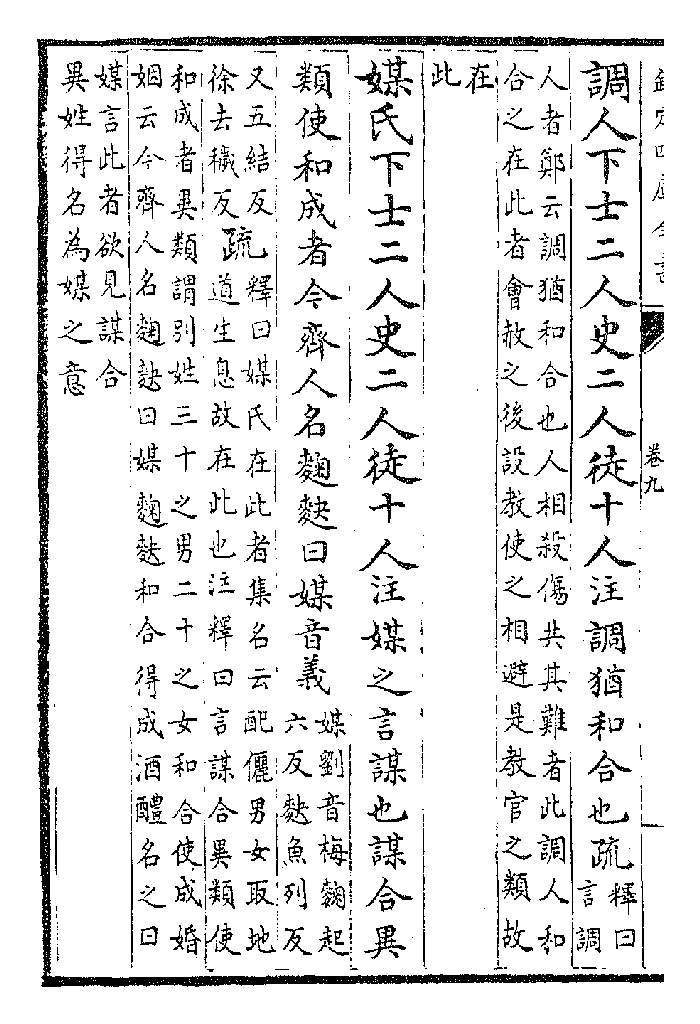 欽定四庫全書 卷九
調人下士二人史二人徒十人注調猶和合也疏釋曰
言調
人者鄭云調猶和合也人相殺傷共其難者此調人和
合之在此者會赦之後設教使之相避是教官之類故
在
此
媒氏下士二人史二人徒十人注媒之言謀也謀合異
類使和成者今齊人名麴麩曰媒音義媒劉音梅麴起
六反麩魚列反
又五結反
徐去穢反
疏釋曰媒氏在此者集名云配儷男女取地
道生息故在此也注釋曰言謀合異類使
和成者異類謂别姓三十之男二十之女和合使成婚
姻云今齊人名麴麩曰媒麴麩和合得成酒醴名之曰
媒言此者欲見謀合
異姓得名為媒之意